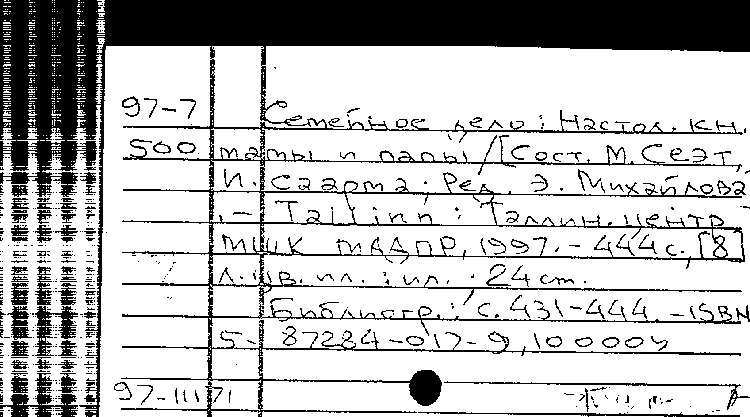 97-7 Семейное дело: Настол. кн.
500 мамы и папы / [Сост. М. Сеэт,
И. Саарма; Ред. Э. Михайлова
.- Tallinn: Таллин. центр
МШК МАДПР, 1997. - 444 с., [8]
л. цв. ил.: ил.; 24 cm.
Библиогр.: с. 431-444. - ISBN
5-87284-017-9, 10000ч
97-11171